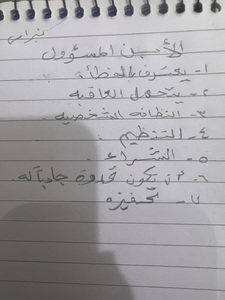 نبراس
الأبن المسؤول
١- يعترف بالخطأ
٢- يتحمل العاقبه
٣- النظافه الشخصيه
٤- التنظيم
٥- الشراء
٦- أن يكون قدوة
٧- تحفيزه